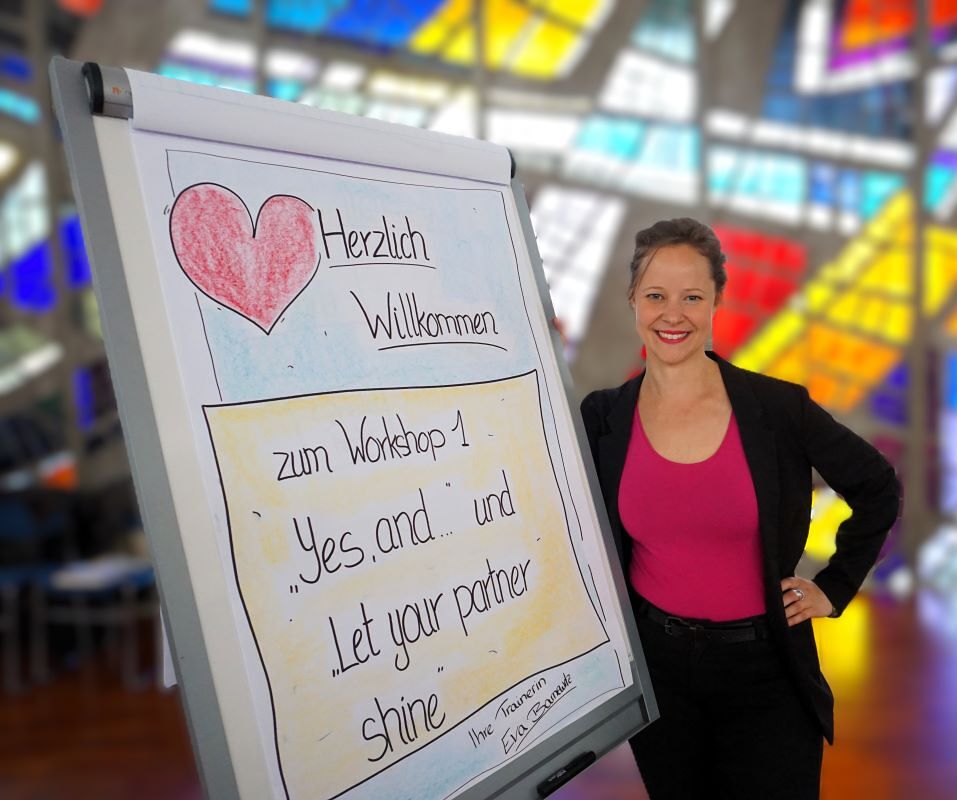 Herzlich
Willkommen
zum Workshop 1
„Yes, and..." und
„Let your partner
shine"
Ihre Trainerin
Eva Barnewitz